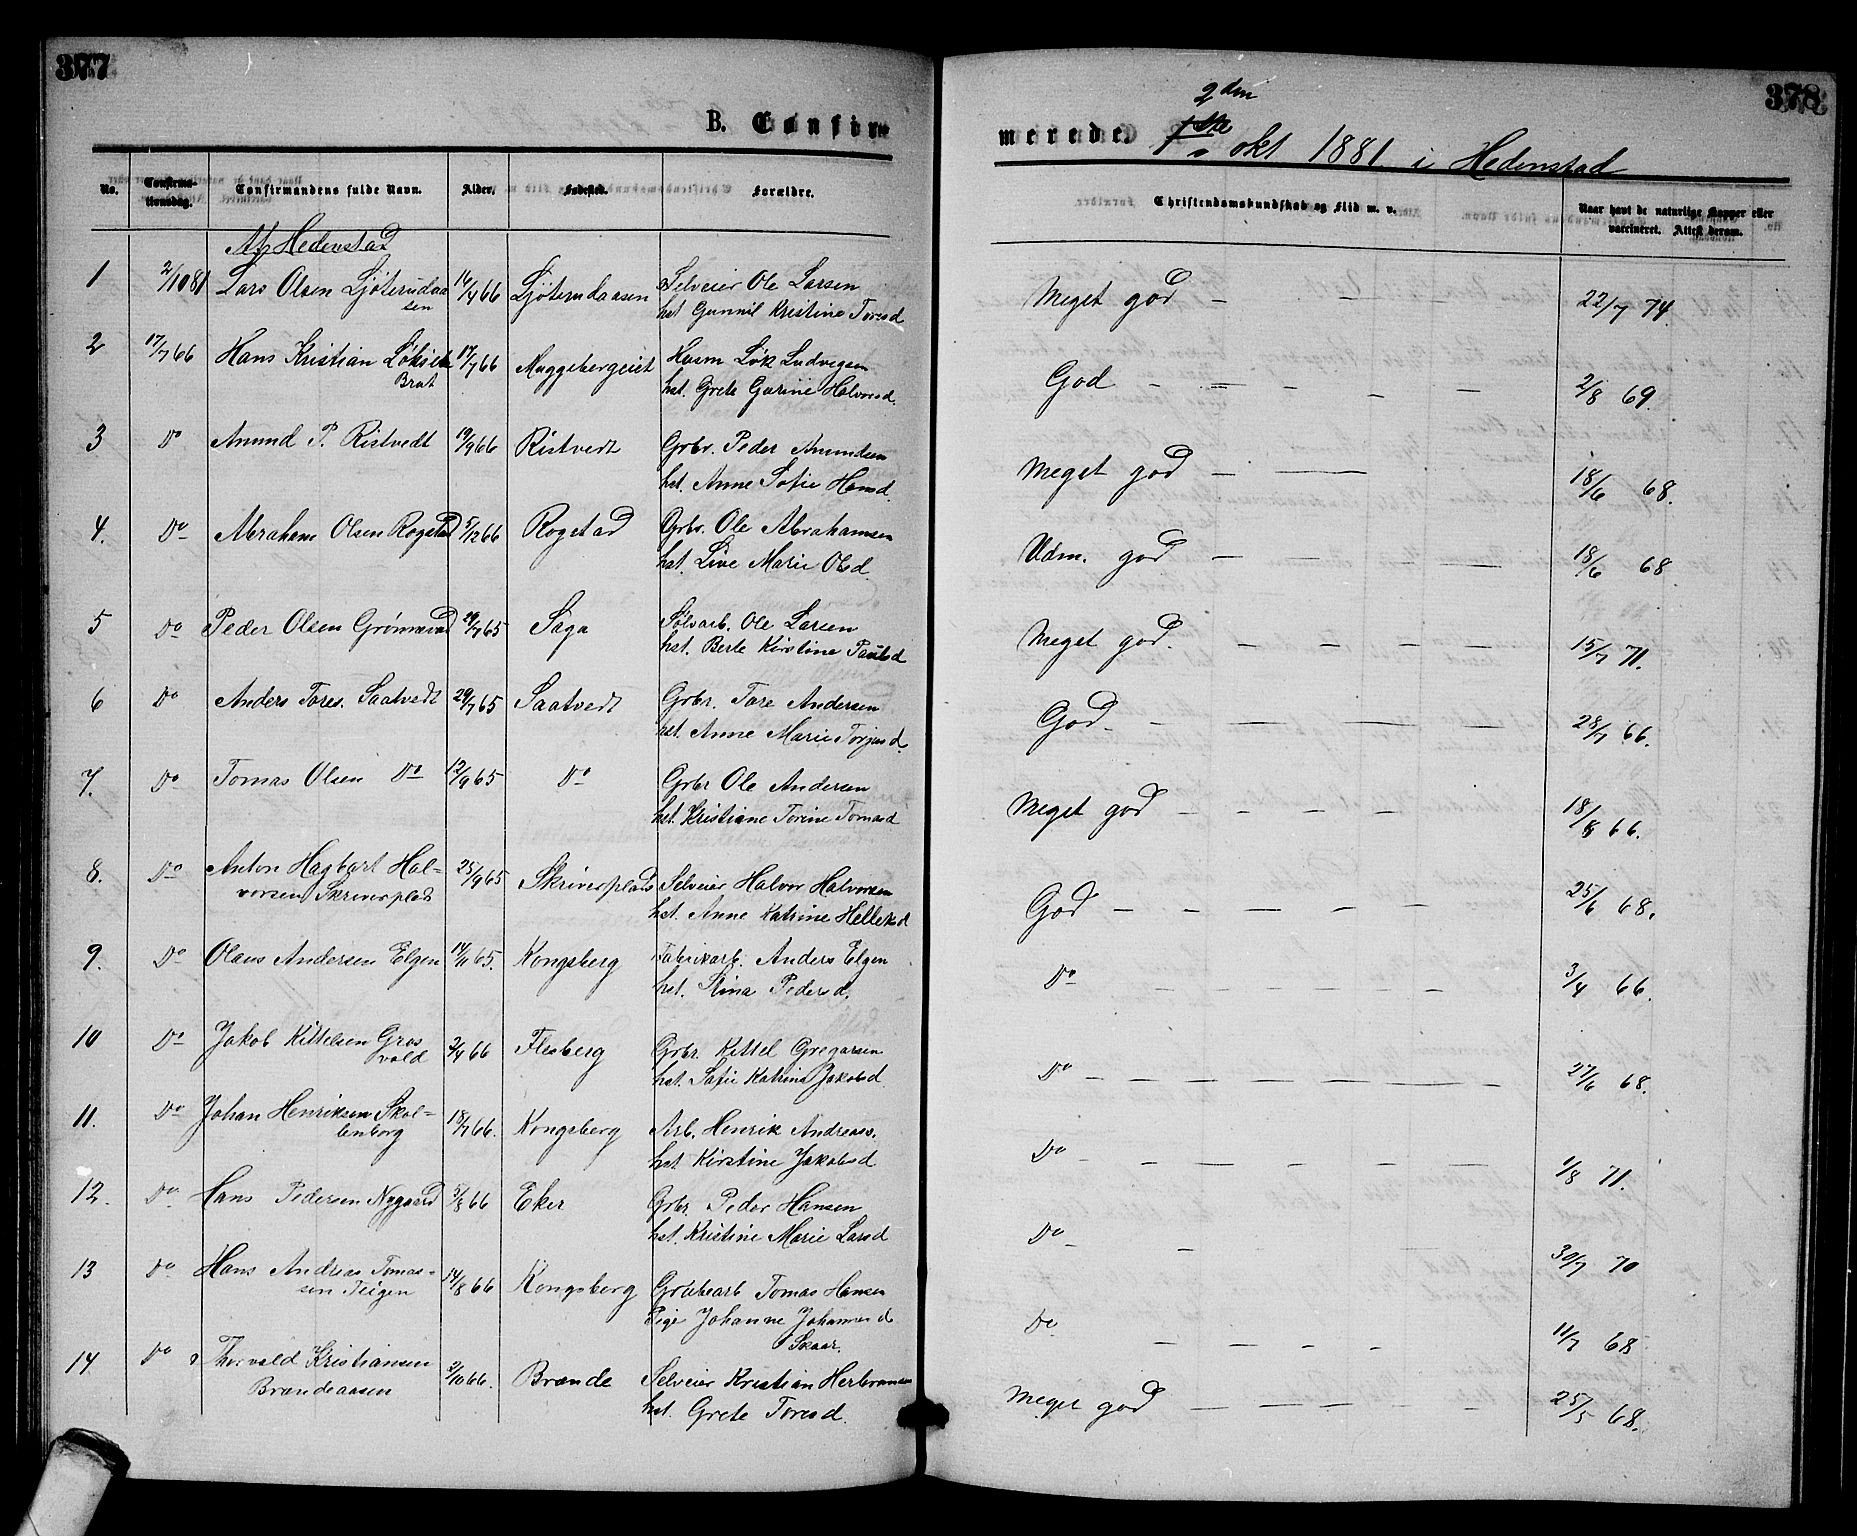 377
378
B. Confir
merede
2den
1ste okt 1881 i Hedenstad
No.
Confirma-
tionsdag.
Confirmandens fulde Navn.
Alder.
Fødested.
Forældre.
Christendomskundskab og Flid m. v.
Naar havt de naturlige Kopper eller
vaccineret. Attest derom.
Af Hedenstad
1 2/10 81 Lars Olsen Ljøterudaa 16/4 66 Ljøterudaasen Selveier Ole Larsen Meget god 22/7 74.
sen hst. Gunnil Kristine Toresd
2 17/7 66 Hans Kristian 17/7 66 Muggebergeiet Husm Løk Ludvigsen God 2/8 69.
Brat hst. Grete Gurine Halvorsd.
3 Do Anund P. Ristvedt 19/9 66 Ristvedt Grbr. Peder Anundsen Meget god 18/6 68.
hst. Anne Sofie Hansd.
4. Do Abraham Olsen Rogstad 5/12 66 Rogstad Grbr. Ole Abrahamsen Udm. god 18/6 68
hst. Live Marie Olsd.
5 Do Peder Olsen 29/7 65 Saga Sølvarb. Ole Larsen Meget god. 15/7 71.
hst. Berte Kirstine Paulsd
6 Do Anders Tores. Saatvedt 29/7 65 Saatvedt Grbr. Tore Andersen God 28/7 66.
hst. Anne Marie Torjusd.
7. Do Tomas Olsen Do 12/9 65 Do Grbr Ole Andersen Meget god 18/8 66.
hst. Kristiane Torine Tomasd
8. Do Anton Hagbart Hal- 25/9 65 Skriverplads Selveier Halvor Halvorsen God 25/6 68.
vorsen Skriverplads hst. Anne Katrine Helleksd
9. Do Olaus Andersen Elgen 14/11 65. Kongsberg Fabrikarb. Anders Elgen Do 3/4 66.
hst. Stina Pedersd.
10 Do Jakob Kittelsen Gros 2/4 66 Flesberg Grbr. Kittel Gregarsen Do 27/6 68.
vold hst. Sofie Katrine Jakobsd
11. Do Johan Henriksen Skol- 18/7 66. Kongsberg Arb. Henrik Andreass. Do 1/8 71.
lenborg hst Kirstine Jakobsd
12. Do Hans Pedersen Nygaard 5/8 66 Eker Grbr. Peder Hansen Do 30/7 70
hst. Kristine Marie Larsd
13 Do Hans Andreas Tomas- 14/8 66 Kongsberg Grubearb Tomas Hansen Do 11/7 68
sen Teigen Pige Johanne Johannesd
Skaar.
14. Do Thorvald Kristiansen 2/10 66. Brænde Selveier Kristian Herbransen Meget god 25/5 68.
Brændeaasen hst. Grete Toresd.